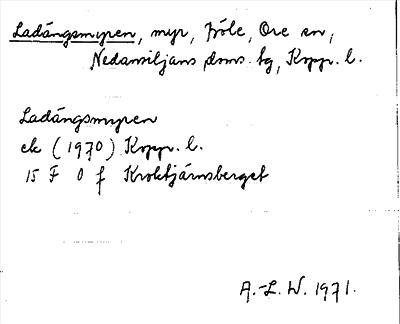 Ladängsmyren, myr, Fröle, Ore sn,
Nedansiljans doms. hg, Kopp. l.
Ladängsmyren
ek (1970) Kopp. l.
15 F 0 f Kroktjärnsberget
A.-L. W. 1971.